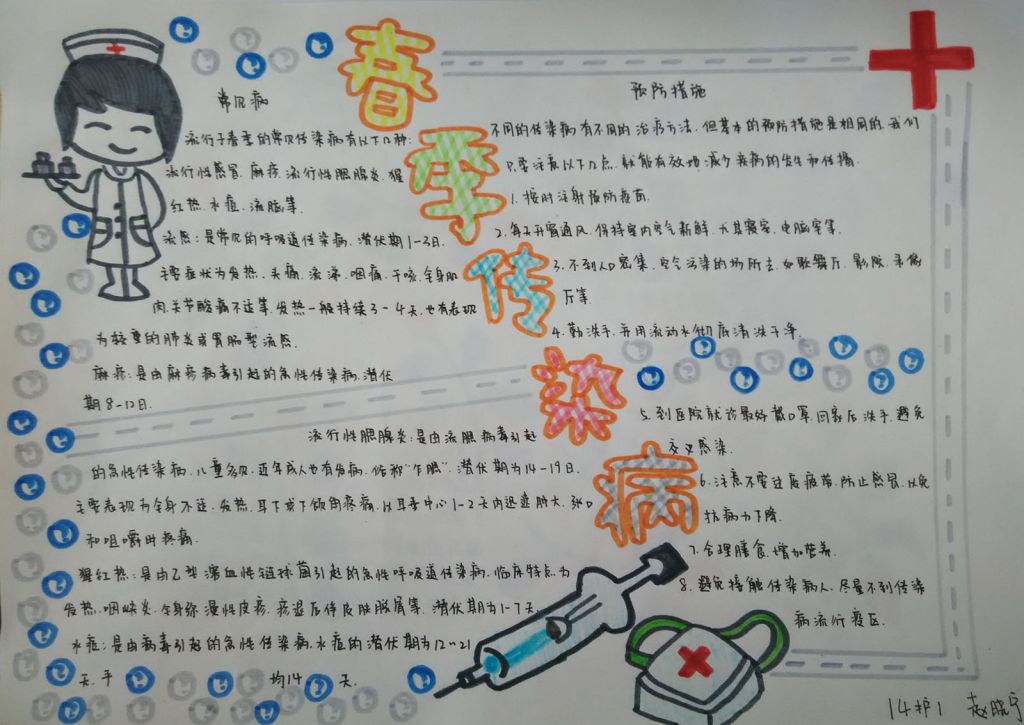 春季传染病
常见病
流行于春季的常见传染病有以下几种:
流行性感冒.麻疹.流行性腮腺炎.猩
红热.水痘.流脑等.
流感:是常见的呼吸道传染病.潜伏期1-3日.
主要症状为发热.头痛.流涕.咽痛.干咳.全身肌
肉.关节酸痛不适等.发热一般持续3-4天.也有表现
为较重的肺炎或胃肠型流感.
麻疹:是由麻疹病毒引起的急性传染病.潜伏
期8-12日.
流行性腮腺炎:是由流腮病毒引起
的急性传染病.儿童多见.近年成人也有发病.俗称"乍腮".潜伏期为14-19日.
主要表现为全身不适.发热.耳下或下颌角疼痛.以耳垂中心1-2天内迅速肿大.张口
和咀嚼时疼痛.
猩红热:是由乙型溶血性链球菌引起的急性呼吸道传染病.临床特点为
发热.咽峡炎.全身弥漫性皮疹.疹退后伴皮肤脱屑等.潜伏期为1-7天.
水痘:是由病毒引起的急性传染病.水痘的潜伏期为12-21
天.平均14天.
预防措施
不同的传染病有不同的治疗方法.但基本的预防措施是相同的.我们
只要注意以下几点.就能有效地减少疾病的发生和传播.
1.按时注射预防疫苗.
2.每天开窗通风.保持室内空气新鲜.尤其寝室.电脑室等.
3.不到人口密集.空气污染的场所去.如歌舞厅.影院.录像
厅等.
4.勤洗手.并用流动水彻底清洗干净.
5.到医院就诊最好戴口罩.回家后洗手.避免
交叉感染.
6.注意不要过度疲劳.防止感冒.以免
抗病力下降.
7.合理膳食.增加营养.
8.避免接触传染病人.尽量不到传染
病流行疫区.
14护1 赵晓宁